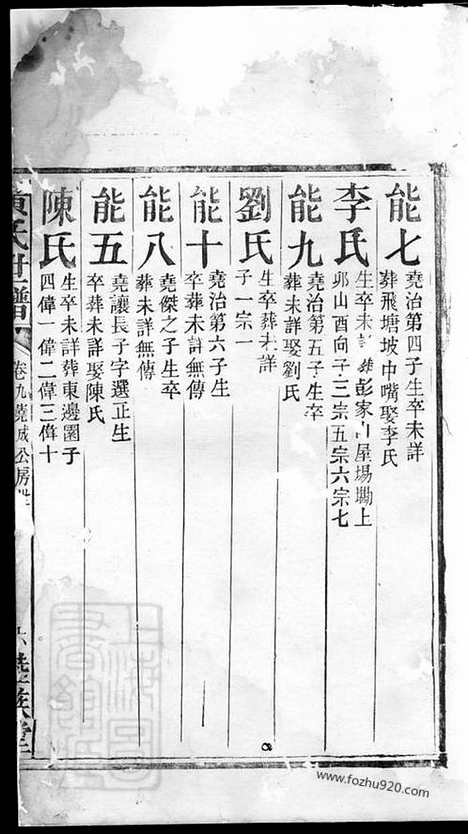 能七
堯治第四子生卒未詳
葬飛塘坡中嘴娶李氏
李氏
生卒未 葬彭家 屋場坳上
卯山酉向子三宗五宗六宗七
能九
堯治第五子生卒
葬未詳娶劉氏
劉氏
生卒葬未詳
子一宗一
能十
堯治第六子生
卒葬未詳無傳
能八
堯傑之子生卒
葬未詳無傳
能五
堯讓長子字選正生
卒葬未詳娶陳氏
陳氏
生卒未詳葬東邊園子
四偉一偉二偉三偉十
黃氏世譜
卷九
成公房
六
堂
www.fozhu920.com